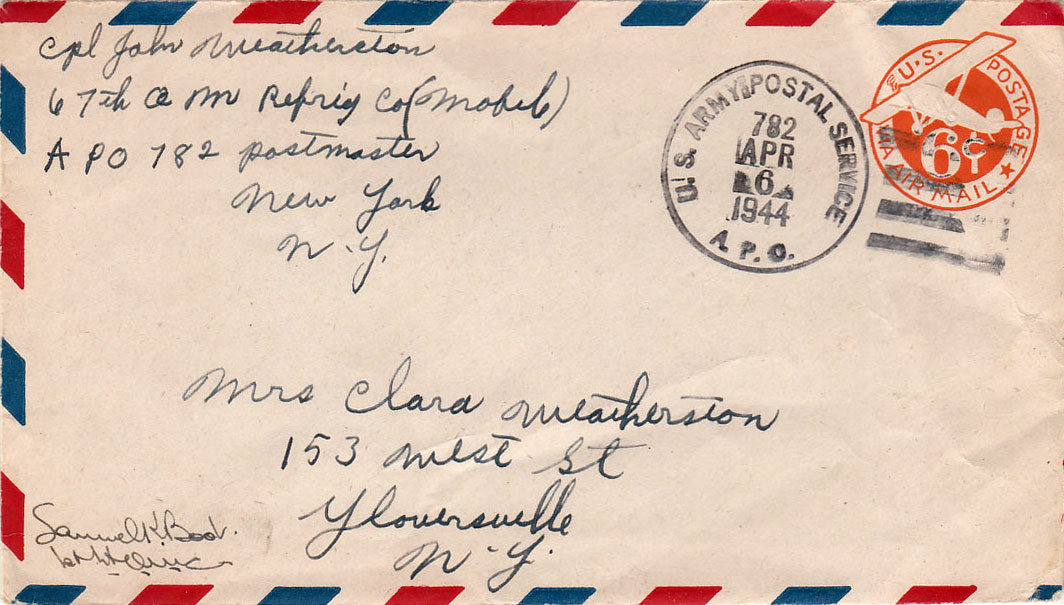 Cpl John Weatherston
67th Q M Refrig Co (Mobile)
APO 782 Postmaster
New York
N.Y.
U.S. ARMY POSTAL SERVICE
782
APR
6
1944
A.P.O.
U.S. POSTAGE
6¢
VIA AIR MAIL
Mrs Clara Weatherston
153 West St
Gloversville
N.Y.
Samuel K. Bod.